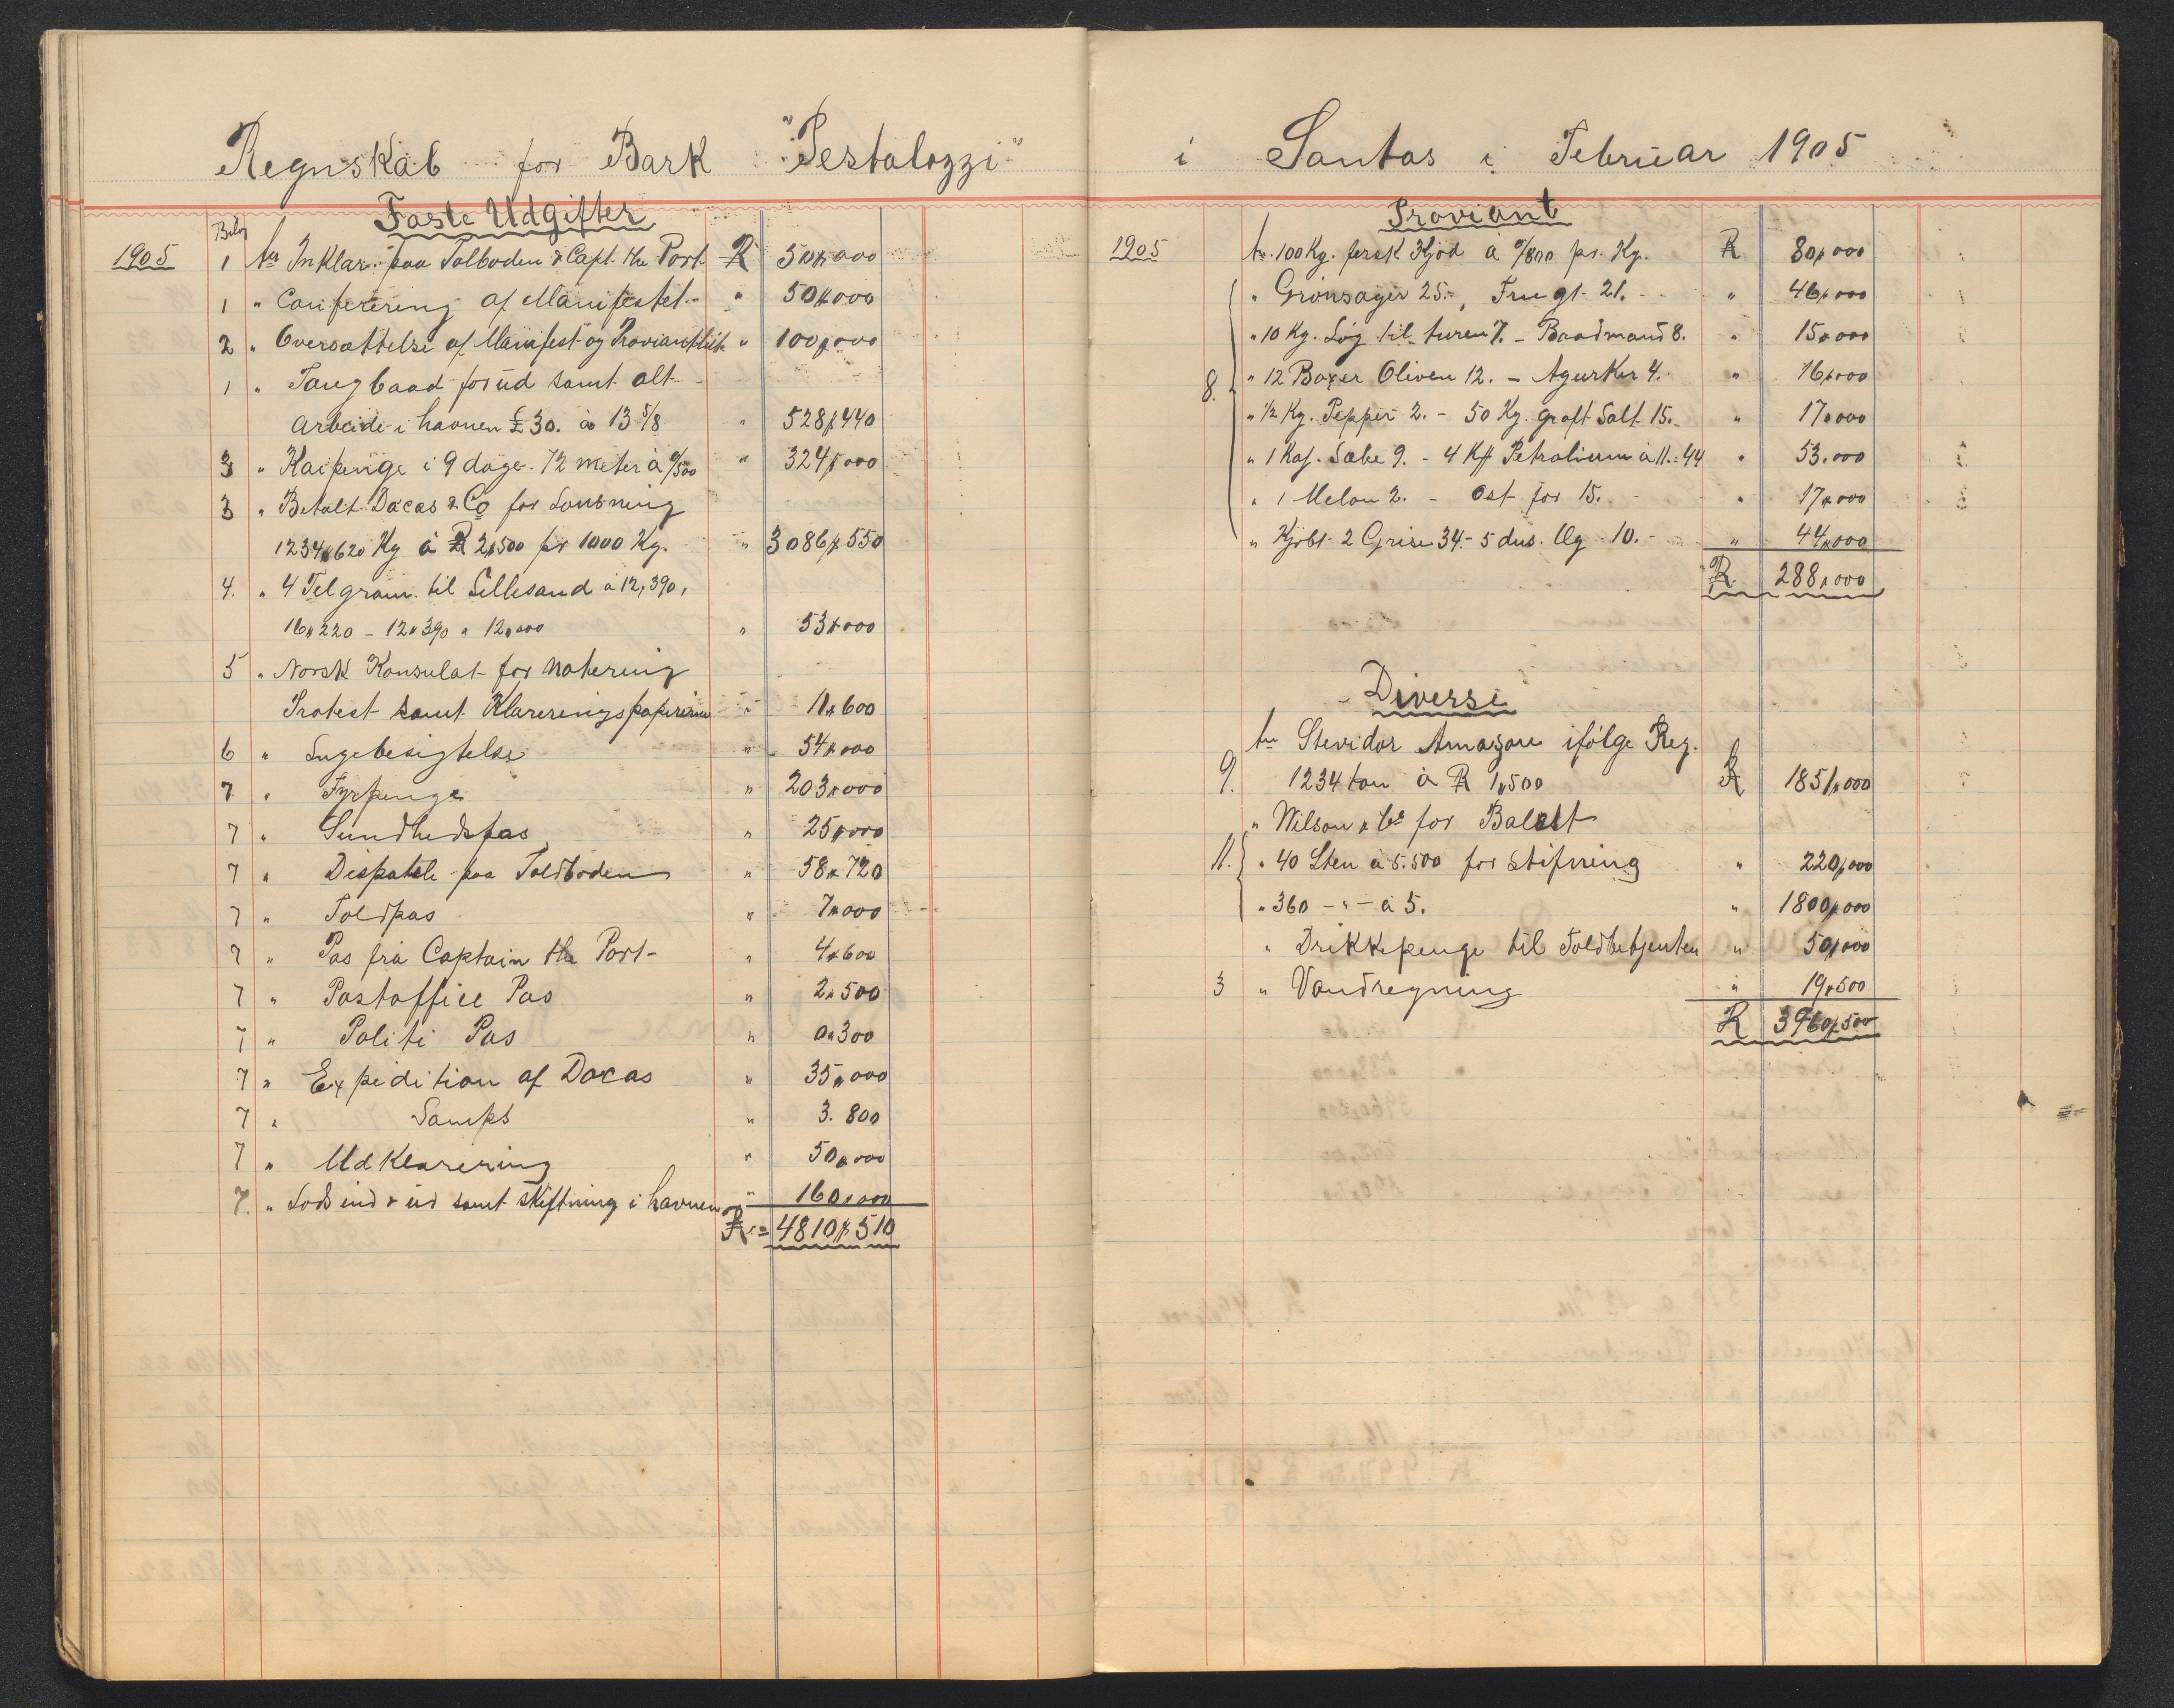 Regnskab for Bark "Pestalozzi"
Faste Udgifter
Bilag
1905 1 An Inklar. paa Tolboden & Capt. the Port R 50$000
1 " Conferering af Manifestet " 50$000
2 " Oversættelse af Manifest og Proviantliste " 100$000
1 " Taugbaad for ud samt alt
Arbeide i havnen £30. à 13 5/8 " 528$440
3 " Kaipenge i 9 dage. 72 meter à 0/500 " 324$000
3 " Betalt Docas & Co for Lousning
1234$620 Kg à R 2$500 pr 1000 Kg. " 3086$550
4. " 4 Telgram. til Lillesand a 12,390,
16$220 - 12$390 " 12$000 " 53$000
5 " Norsk Konsulat for Notering
Protest samt Klareringspapirerne " 11$600
6 " Lugebesigtelse " 54$000
7 " Fyrpenge " 203$000
7 " Sundhedspas " 25$000
7 " Dispatch paa Toldboden " 58$720
7 " Toldpas " 7$000
7 " Pas fra Captain the Port " 4$600
7 " Postoffice Pas " 2$500
7 " Politi Pas " 0$300
7 " Expedition af Docas " 35$000
7 " Stamps " 3.800
7 " Udklarering " 50$000
7. " Lods ind & ud samt skiftning i havnen " 160$000
R = 4810$510
i Santos i Februar 1905
Proviant
1905 An 100 Kg. fersk Kjød à 0/800 pr. Kg. R 80$000
" Grønsager 25.-, Frugt 21. " 46$000
" 10 Kg. Løg til turen 7. - Baadmand 8. " 15$000
8. " 12 Boxer Oliven 12. - Agurker 4. " 16$000
" 1/2 Kg. Pepper 2. - 50 Kg. groft Salt 15. " 17$000
" 1 Kas. Sæbe 9. - 4 Kas Petrolium à 11.=44 " 53.000
" 1 Melon 2. - Ost for 15. " 17$000
" Kjøbt 2 Grise 34.- 5 dus. Æg 10. " 44$000
R 288$000
Diverse
An Stevidor Amazone ifølge Reg.
9. 1234 ton à R 1$500 R 1851$000
" Wilson & Co for Balast
11. " 40 Sten à 5.500 for Stifning " 220$000
" 360 - " - à 5. " 1800$000
" Drikkepenge til Toldbetjenten " 50$000
3 " Vandregning " 19$500
R 3960$500